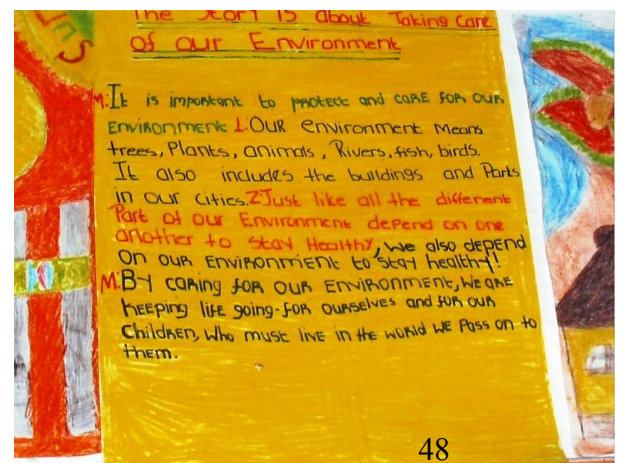 The Story is about Taking Care
of our Environment
M: It is important to protect and care for our
Environment 1. Our environment Means
trees, Plants, animals, Rivers, fish, birds.
It also includes the buildings and Parks
in our Cities. 2 Just like all the different
Part of our Environment depend on one
another to stay Healthy, we also depend
on our Environment to stay healthy!
M: By caring for our Environment, we are
keeping life going-for ourselves and for our
Children, who must live in the world we Pass on to
them.
48